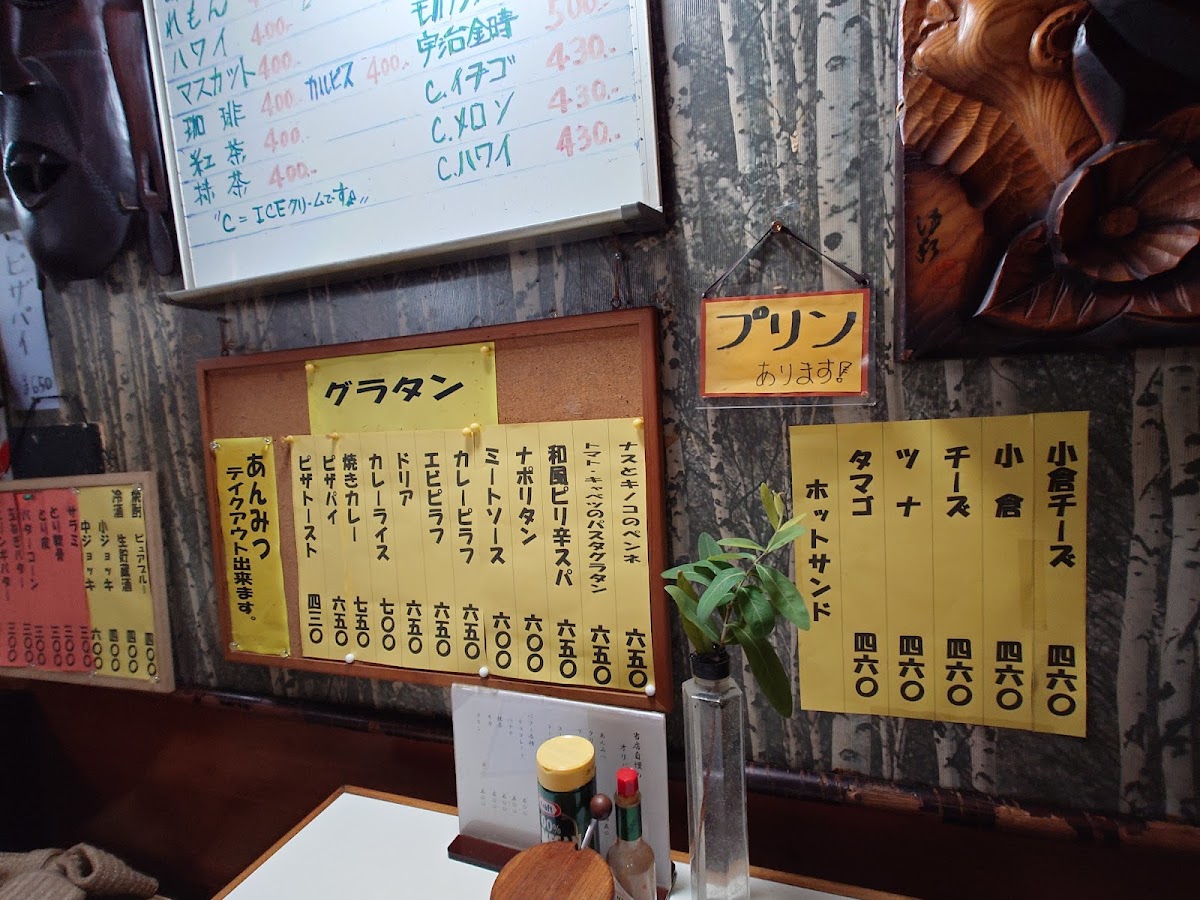 れもん
ハワイ 400.-
マスカット 400.-
珈琲 400.- カルピス 400.-
紅茶 400.-
抹茶 400.-
"C = ICEクリームです♪"
宇治金時 500.-
C.イチゴ 430.-
C.メロン 430.-
C.ハワイ 430.-
ピザパイ
¥650
プリン
あります!
グラタン
あんみつ
テイクアウト出来ます。
ナスとキノコのペンネ 六五〇
トマト・キャベツのパスタグラタン 六五〇
和風ピリ辛スパ 六五〇
ナポリタン 六〇〇
ミートソース 六〇〇
カレーピラフ 六五〇
エビピラフ 六五〇
ドリア 六五〇
カレーライス 七〇〇
焼きカレー 七五〇
ピザパイ 六五〇
ピザトースト 四三〇
小倉チーズ 四六〇
小倉 四六〇
チーズ 四六〇
ツナ 四六〇
タマゴ 四六〇
ホットサンド
焼酎 ピュアブルー 四〇〇
冷酒 生貯蔵酒 四〇〇
小ジョッキ 四〇〇
中ジョッキ 六〇〇
サラミ
とり軟骨
とり皮
バターコーン